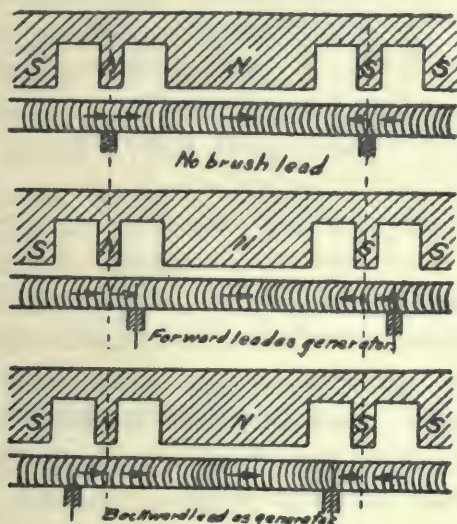 S N N S S
No brush lead
S N N S S
Forward lead as generator.
S N N S S
Backward lead as generator.